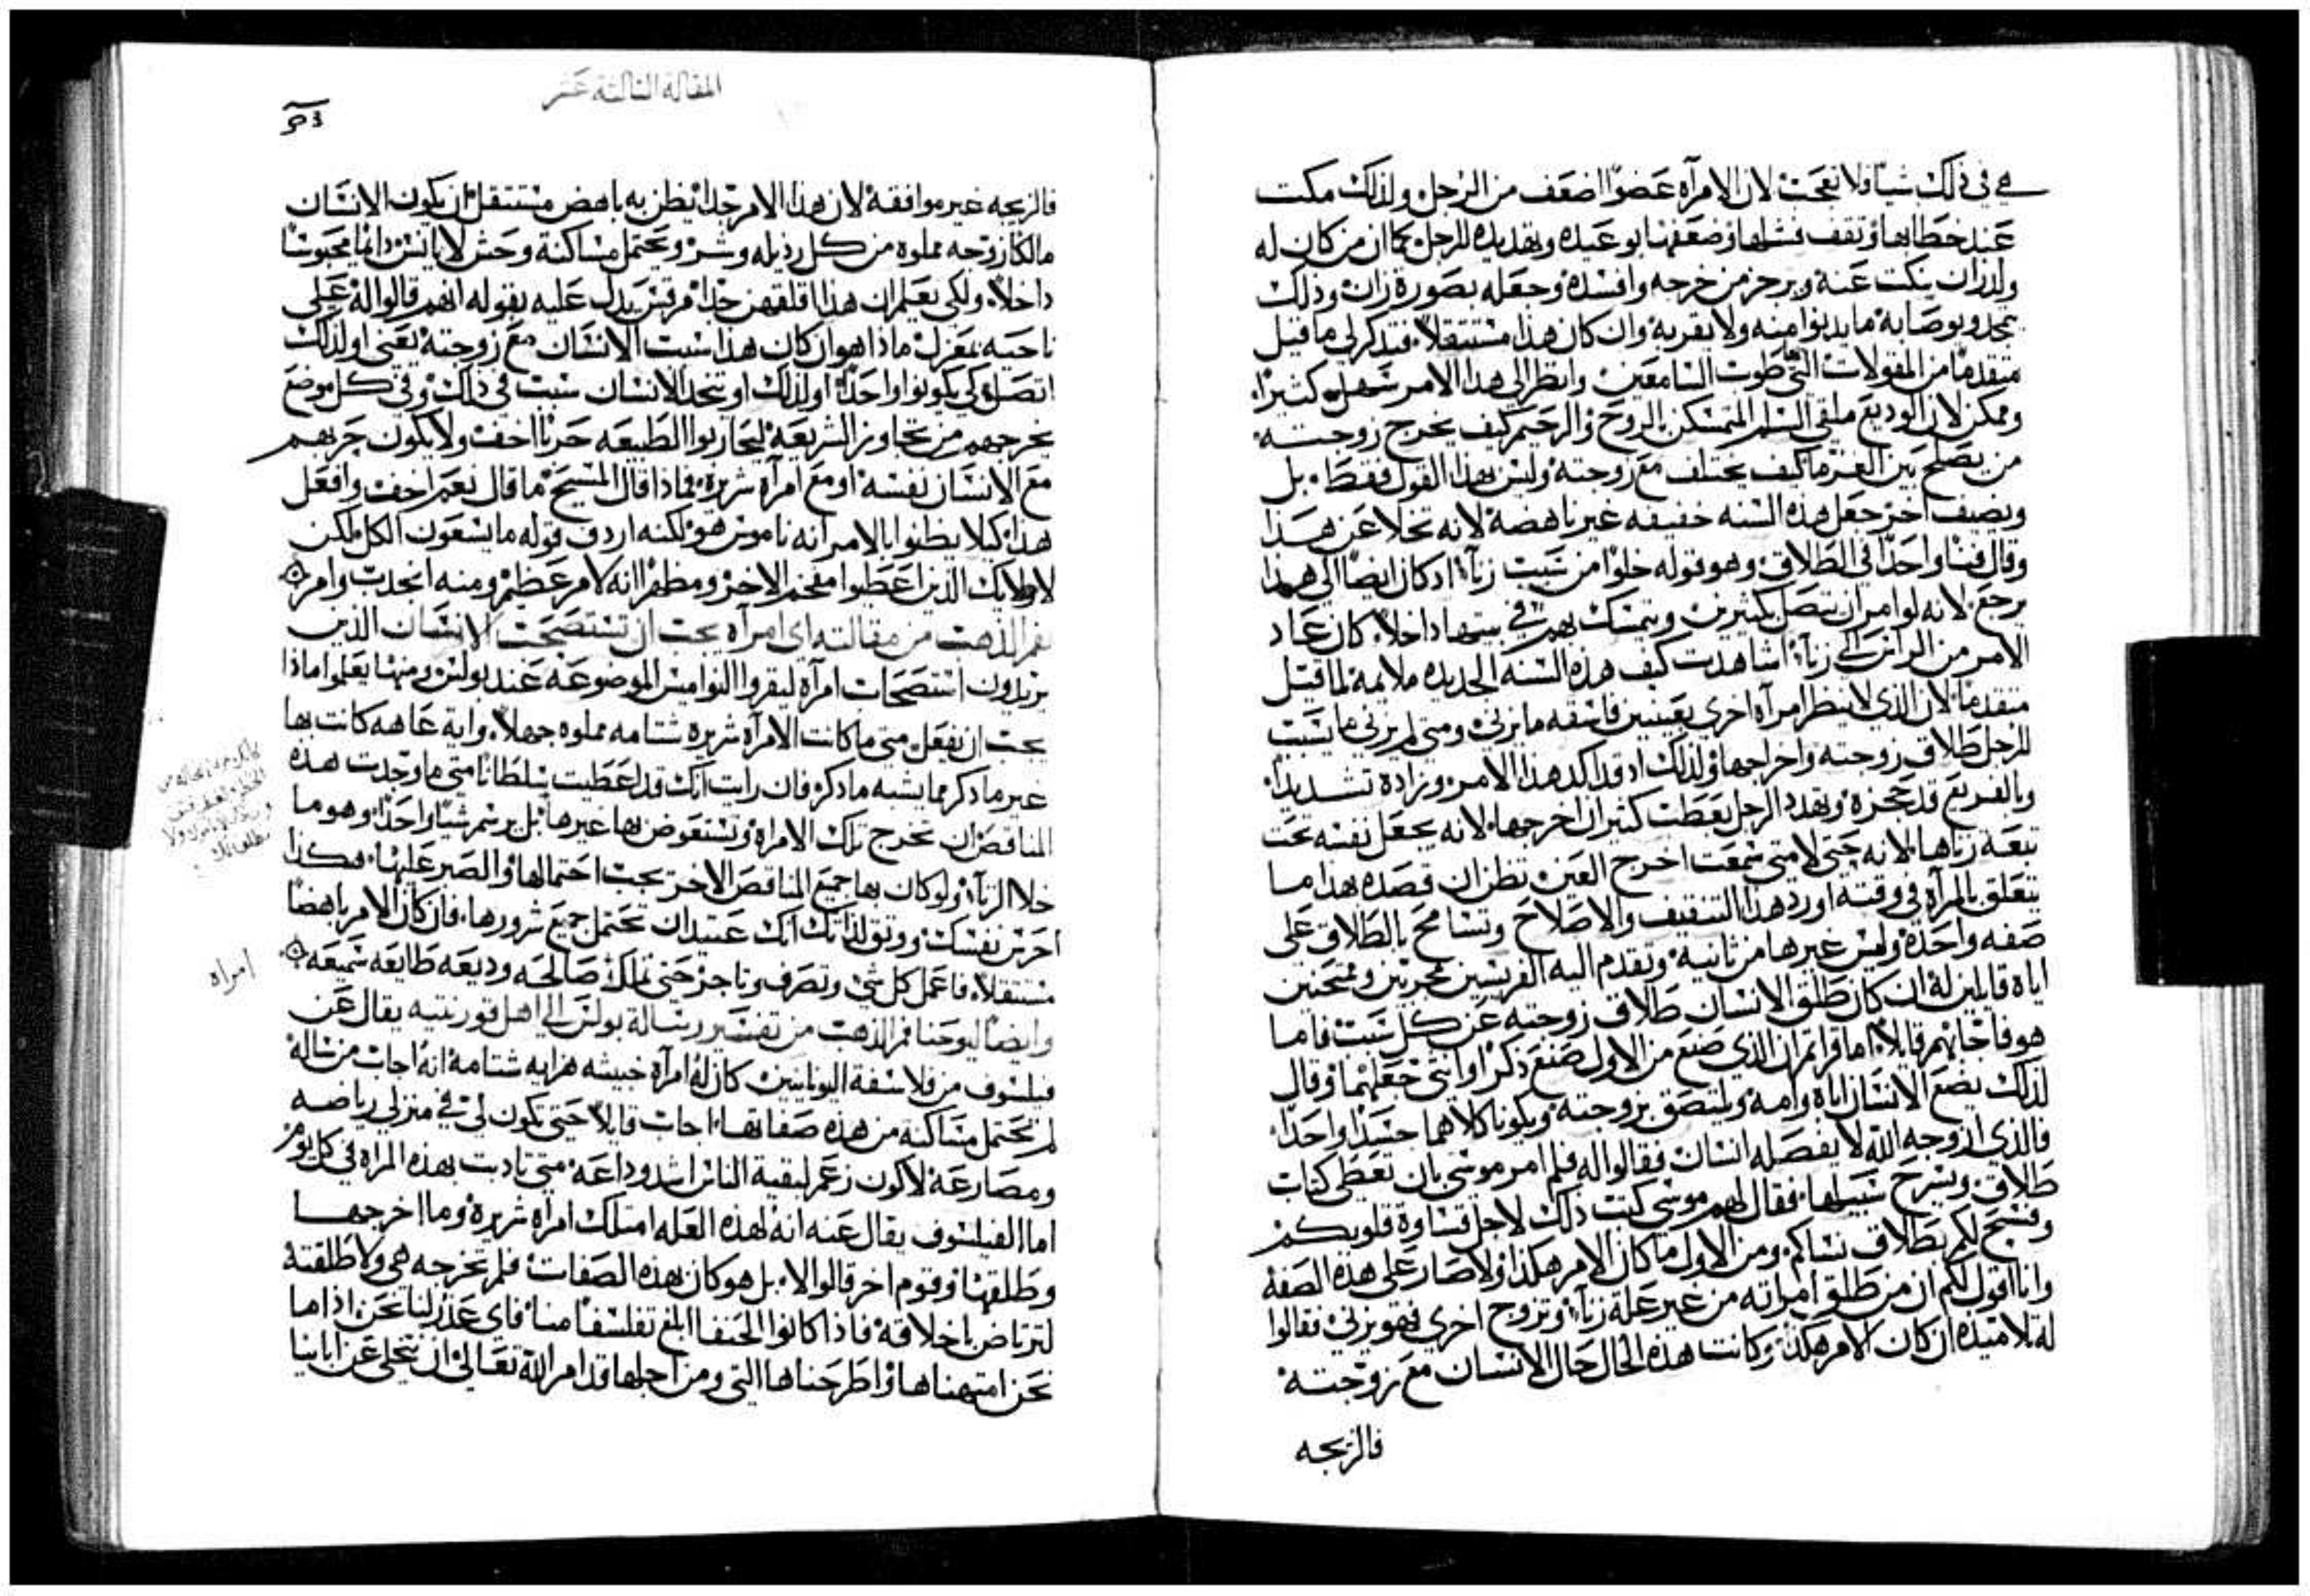 هي في ذلك شيا ولا تعجب لان الامرآه عضوًا اضعف من الرجل ولذلك مكت
عند خطابها وتقف فشلها وضعفها بوعيده وتهديده للرجل كما ان من كان له
ولدزان ينكت عنه ويرجز من خرجه وافسده وجعله بصورة زان وذلك
متقدمًا من المقولات التي طوت السامعين وانظر الى هذا الامر سهل كثيرًا
وممكن لان الوديع ملقي السلم المتمسكن بالروح والرحيم كيف يخرج زوجته
من يصلح بين الغرما كيف يختلف مع زوجته وليس بهذا القول فقط بل
وبصنف اخر جعل هذه السنه خفيفه غير باهضه لانه تخلا عن هذا
وقال فنا واحدًا في الطلاق وهو قوله خلوا من سبب زنآ اد كان ايضًا الى هذا
يرجع لانه لو امر ان تتصل بكثيرين ويتمسك بهم في بيتها داخلا كان عاد
الامر من الراس الى زنآ اشاهدت كيف هذه السنه الجديده ملايمه لما قيل
متقدمًا لان الذي لا ينظر امرآه اخرى بعينين فاسقه ما يزني ومتى لم يزني ما يسبب
للرجل طلاق زوجته واخراجها ولذلك اد قد اكد هذا الامر وزاده تشديدًا
وبالفزع قد حجزه وتهدد الرجل بعطب كثير ان اخرجها لانه يجعل نفسه تحت
تبعة زناها لانه حتى لا متى سمعت اخرج العين تظن ان قصده بهذا ما
يتعلق بالمرآه في وقته اورد هذا التنقيف والاصلاح وتسامح بالطلاق على
صفه واحده وليس غيرها من ثانيه وتقدم اليه الفريسيين مجربين وممتحنين
اياه قايلين له ان كان طلق الانسان طلاق زوجته عن كل سبب فاما
هو فاجابهم قايلًا اما قراتم ان الذي صنع من الاول صنع ذكرًا وانثى جعلهما وقال
لذلك يضع الانسان اباه وامه ويلتصق بزوجته ويكونا كلاهما جسدًا واحدًا
فالذي ازوجه الله لا يفصله انسان فقالوا له فلم امر موسى بان تعطى كتاب
طلاق ويسرح سبيلها فقال لهم موسى كتب ذلك لاجل قساوة قلوبكم
وفسح لكم بطلاق نساكم ومن الاول ما كان الامر هكذا ولا صار على هذه الصفه
وانا اقول لكم ان من طلق امراته من غير علة زنآ وتزوج اخرى فهو يزني فقالوا
له تلاميذه ان كان الامر هكذا وكانت هذه الحال حال الانسان مع زوجته
فالزيجه
المقالة الثالثة عشر
فالزيجه غير موافقه لان هذا الامر جدًا يظن به باهض مستثقل ان يكون الانسان
مالكًا زوجه مملوه من كل رذيله وشر ويحتمل مساكنة وحش لا يانس دايمًا محبوسًا
داخلا ولكي يعلم ان هذا اقلقهن جدًا مرقس يدل عليه بقوله انهم قالوا له على
ناحيه بمعزل ماذا هو ان كان هذا سبب الانسان مع زوجته يعني او لذلك
اتصلوا كي يكونوا واحدًا او لذلك او تتحد الانسان سبب في ذلك وفي كل موضع
يخرجهم من تجاوز الشريعه ليحاربوا الطبيعه حربًا اخف ولا يكون حربهم
مع الانسان نفسه او مع امرآه شريره فماذا قال المسيح ما قال نعم اخف وافعل
هذا كيلا يظنوا بالامر انه ناموس هو لكنه اردف قوله ما يسعون الكل لكن
لاولايك الذين اعطوا مفخم الاخر ومظهرًا انه لامر عظيم ومنه انحدت وامر
فم الذهب من مقالته اى امرآه يجب ان تستصحب الانسان الذين
يريدون استصحاب امرآه ليقروا النواميس الموضوعه عند بولس ومنها يعلموا ماذا
يجب ان يفعل متى ما كانت الامرآه شريره شتامه مملوه جهلا واية عاهه كانت بها
غير ما دكر مما يشبه ما دكر فان رايت انك قد اعطيت سلطانًا متى ما وجدت هذه
المناقص ان تخرج تلك الامراه وتستعوض بها غيرها بل يرسم شيًا واحدًا وهو ما
خلا الزنآ ولو كان بها جميع المناقص الاخر يجب احتمالها والصبر عليها هكذا
احرس نفسك ووثق لذاتك انك عتيد ان تحتمل جميع شرورها فان كان الامر باهضًا
مستثقلا فاعمل كل شي وتصرف وتاجر حتى تملك صالحه وديعه طايعه سميعه
امراه
وايضًا ليوحنا فم الذهب من تفسير رسالة بولس الى اهل قورنتيه يقال عن
فيلسوف من فلاسفة اليونانيين كان له امرآه خبيثه هرايه شتامه انه اجاب من ساله
لم تحتمل مساكنه من هذه صفاتها اجاب قايلًا حتى تكون لي في منزلي رياضه
ومصارعه لاكون زعم لبقية الناس اشد وداعه متى تادبت بهذه المراه في كل يوم
اما الفيلسوف يقال عنه انه لهذه العله امتلك امراه شريره وما اخرجها
وطلقها وقوم اخر قالوا لا بل هو كان بهذه الصفات فلم تخرجه هي ولا طلقته
لترتاض باخلاقه فاذا كانوا الحنفا ابلغ تفلسفًا منا فاى عذر لنا نحن اذا ما
نحن امتهناها واطرحناها التي ومن اجلها قد امر الله تعالى ان نتخلى عن ابانيا